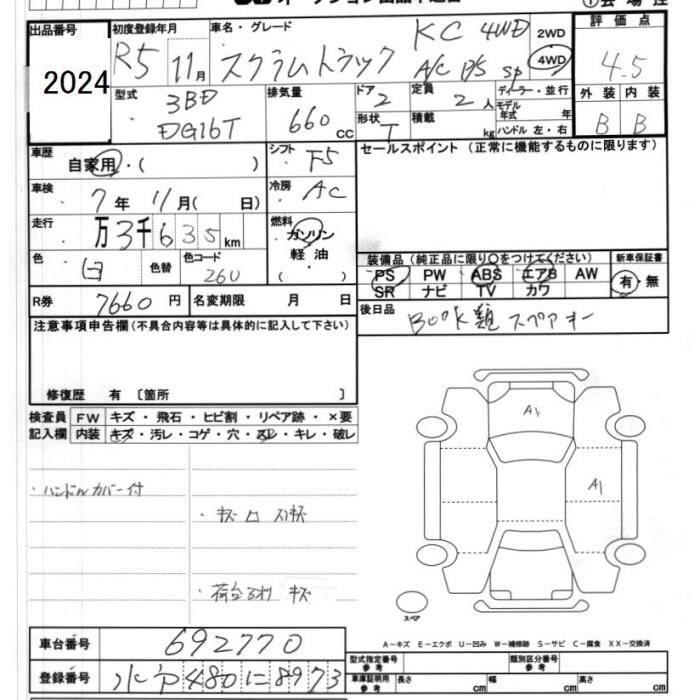 出品番号 初度登録年月 車名・グレード 評価点
2024 R5 11月 スクラムトラック KC 4WD A/C P/S 2WD 4WD 4.5
型式 排気量 ドア 定員 ディーラー・並行 外装 内装
3BD 660 CC 2 2人 モデル年式 年 B B
DG16T 形状 T 積載 kg ハンドル 左・右
車歴 シフト セールスポイント (正常に機能するものに限ります)
自家用・( ) F5
車検 冷房
7年 11月( 日) AC
走行 燃料
万3千635km ガソリン
色 色替 色コード 軽油
白 26U ( )
装備品 (純正品に限り○をつけてください) 新車保証書
PS PW ABS エアB AW 有・無
SR ナビ TV カワ
R券 7660円 名変期限 月 日
後日品 BOOK類 スペアキー
注意事項申告欄(不具合内容等は具体的に記入して下さい)
修復歴 有 〔箇所 〕
検査員 FW キズ・飛石・ヒビ割・リペア跡・×要
記入欄 内装 キズ・汚レ・コゲ・穴・スレ・キレ・破レ
・ハンドルカバー付
A1
A1
スペア
A-キズ E-エクボ U-凹み W-補修跡 S-サビ C-腐食 XX-交換済
車台番号 692770 型式指定番号 参考 類別区分番号 参考
登録番号 水戸480に8973 車庫証明用 参考 長さ cm 幅 cm 高さ cm